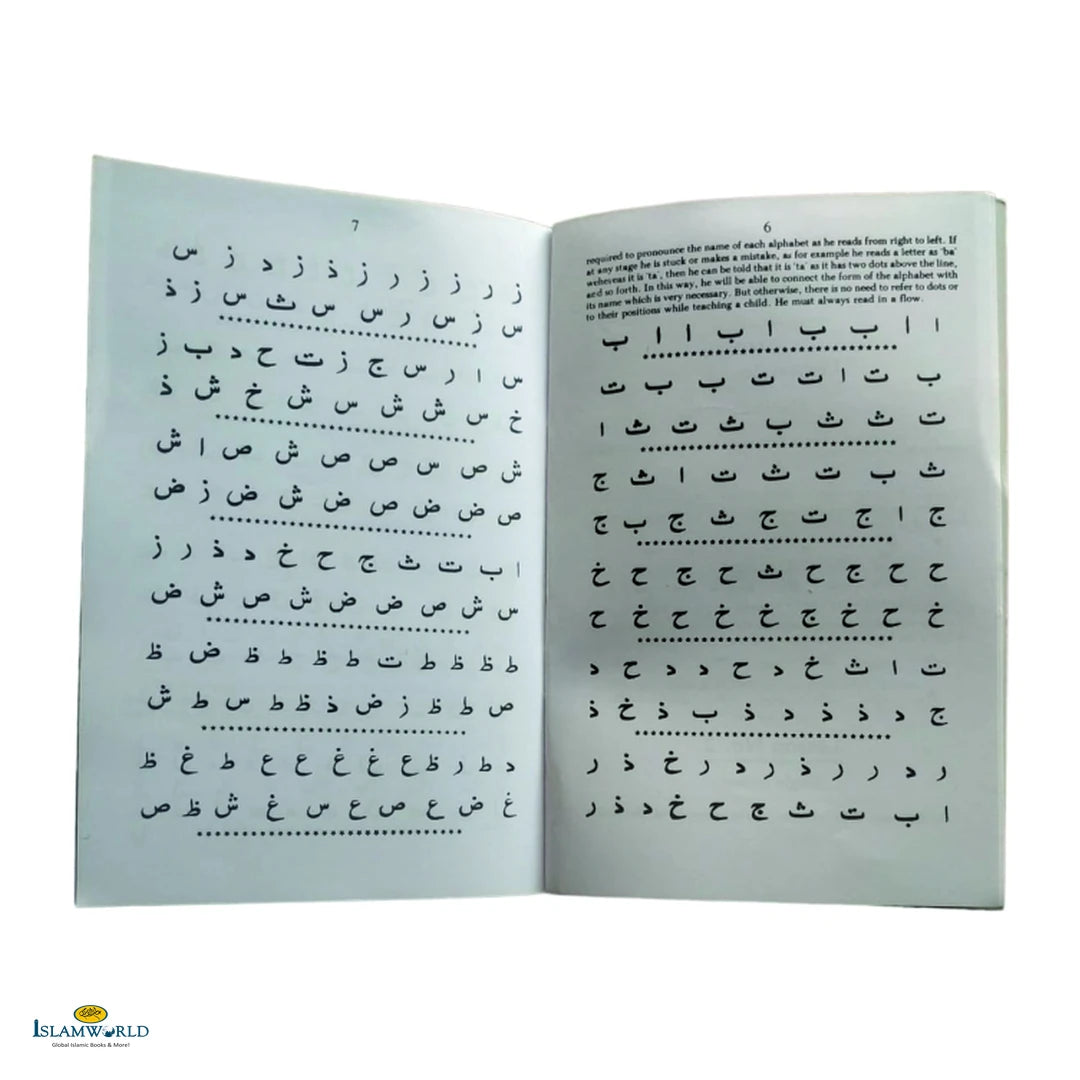 6
required to pronounce the name of each alphabet as he reads from right to left. If
at any stage he is stuck or makes a mistake, as for example he reads a letter as 'ba'
weheveas it is 'ta', then he can be told that it is 'ta' as it has two dots above the line,
and so forth. In this way, he will be able to connect the form of the alphabet with
its name which is very necessary. But otherwise, there is no need to refer to dots or
to their positions while teaching a child. He must always read in a flow.
ا ا ب ب ا ب ا ا ب
ب ت ا ت ت ب ب ت
ت ث ث ب ث ت ث ا
ث ب ت ث ت ا ث ج
ج ا ج ت ج ث ج ب ج
ح ح ج ح ث ح ج ح خ
خ ح خ ج خ خ ح خ ح
ت ا ث خ د ح د د ح د
ج د ذ ذ د ذ ب ذ خ ذ
ر د ر ر ذ ر د ر خ ذ ر
ا ب ت ث ج ح خ د ذ ر
7
ز ر ز ر ز ذ ز د ز س
س ز س ر س س ث س ز ذ
س ا ر س ج ز ت ح د ب ز
خ س ش ش س ش خ ش ذ
ش ص س ص ص ش ص ا ش
ص ض ض ص ض ش ض ز ض
ا ب ت ث ج ح خ د ذ ر ز
س ش ص ض ض ش ص ش ض
ط ظ ظ ط ت ط ظ ط ظ ض ظ
ص ط ظ ز ض ذ ظ ط س ط ش
د ط ر ظ ع غ غ ع ع ط غ ظ
غ ض ع ص ع س غ ش ظ ص
ISLAMWORLD
Global Islamic Books & More!